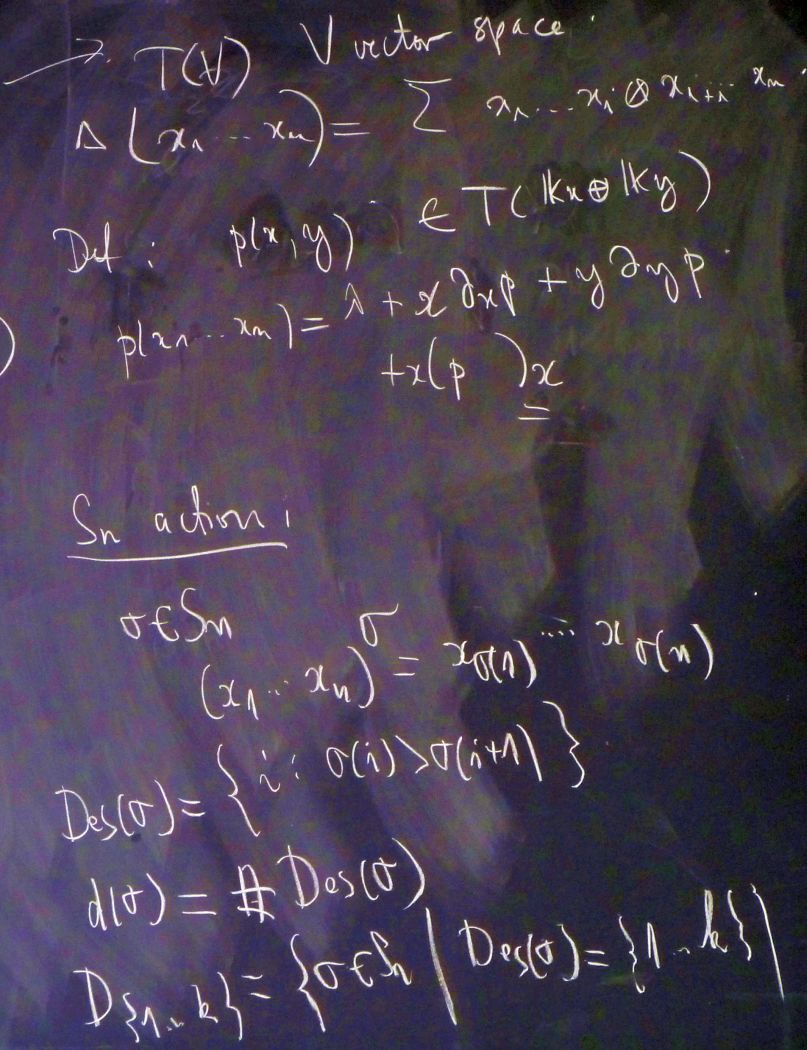 → T(V) V vector space.
Δ(x₁...xₙ) = Σ x₁...xᵢ ⊗ xᵢ₊₁...xₙ
Def: p(x,y) ∈ T(𝕂x ⊕ 𝕂y)
p(x₁...xₙ) = λ + x∂xp + y∂yp
+x(p )x
Sn action:
σ∈Sn
(x₁...xₙ)^σ = x_σ(1)....x_σ(n)
Des(σ) = {i: σ(i)>σ(i+1)}
d(σ) = # Des(σ)
D_{1..k} = {σ∈Sn | Des(σ) = {1..k}}